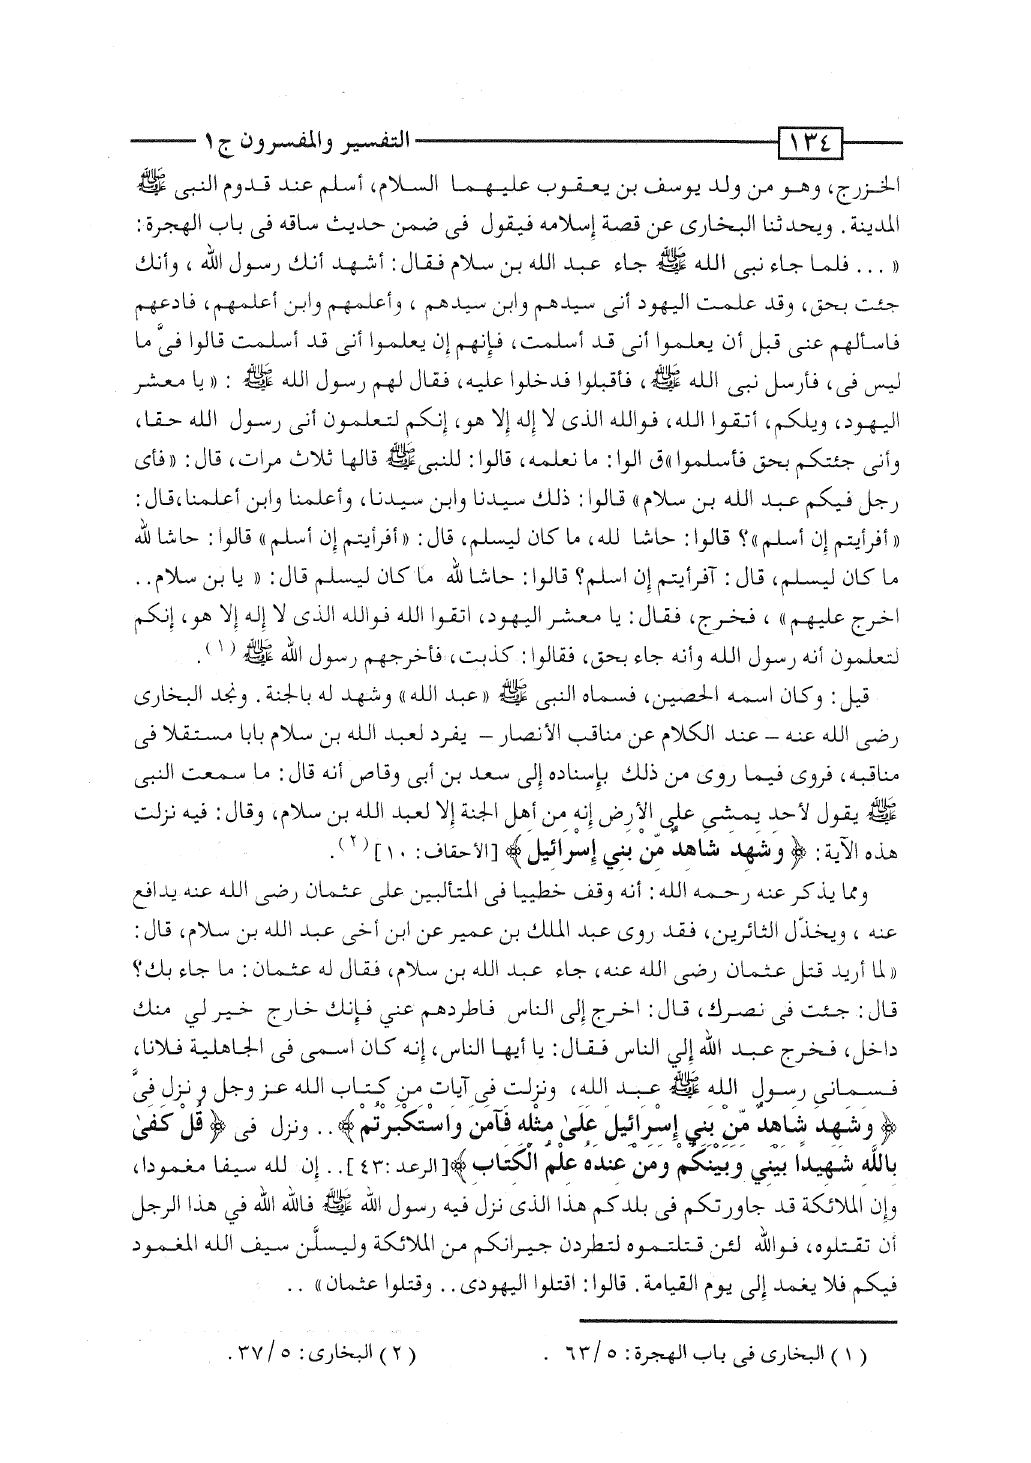 ١٣٤ التفسير والمفسرون ج١
الخزرج، وهو من ولد يوسف بن يعقوب عليهما السلام، أسلم عند قدوم النبى ﷺ
المدينة. ويحدثنا البخارى عن قصة إسلامه فيقول فى ضمن حديث ساقه فى باب الهجرة:
« ... فلما جاء نبى الله ﷺ جاء عبد الله بن سلام فقال: أشهد أنك رسول الله ، وأنك
جئت بحق، وقد علمت اليهود أنى سيدهم وابن سيدهم ، وأعلمهم وابن أعلمهم، فادعهم
فاسألهم عنى قبل أن يعلموا أنى قد أسلمت، فإنهم إن يعلموا أنى قد أسلمت قالوا فىَّ ما
ليس فى، فأرسل نبى الله ﷺ، فأقبلوا فدخلوا عليه، فقال لهم رسول الله ﷺ : «يا معشر
اليهود، ويلكم، أتقوا الله، فوالله الذى لا إله إلا هو، إنكم لتعلمون أنى رسول الله حقا،
وأنى جئتكم بحق فأسلموا»ق الوا: ما نعلمه، قالوا: للنبىﷺ قالها ثلاث مرات، قال: «فأى
رجل فيكم عبد الله بن سلام» قالوا: ذلك سيدنا وابن سيدنا، وأعلمنا وابن أعلمنا،قال:
«أفرأيتم إن أسلم»؟ قالوا: حاشا لله، ما كان ليسلم، قال: «أفرأيتم إن أسلم» قالوا: حاشا لله
ما كان ليسلم، قال: آفرأيتم إن اسلم؟ قالوا: حاشا لله ما كان ليسلم قال: « يا بن سلام..
اخرج عليهم» ، فخرج، فقال: يا معشر اليهود، اتقوا الله فوالله الذى لا إله إلا هو، إنكم
لتعلمون أنه رسول الله وأنه جاء بحق، فقالوا: كذبت، فأخرجهم رسول الله ﷺ (١).
قيل: وكان اسمه الحصين، فسماه النبى ﷺ «عبد الله» وشهد له بالجنة. ونجد البخارى
رضى الله عنه – عند الكلام عن مناقب الأنصار – يفرد لعبد الله بن سلام بابا مستقلا فى
مناقبه، فروى فيما روى من ذلك بإسناده إلى سعد بن أبى وقاص أنه قال: ما سمعت النبى
ﷺ يقول لأحد يمشى على الأرض إنه من أهل الجنة إلا لعبد الله بن سلام، وقال: فيه نزلت
هذه الآية: ﴿ وَشَهِدَ شَاهِدٌ مِّنْ بَنِي إِسْرَائِيلَ ﴾ [الأحقاف: ١٠](٢).
ومما يذكر عنه رحمه الله: أنه وقف خطيبا فى المتألبين على عثمان رضى الله عنه يدافع
عنه ، ويخذّل الثائرين، فقد روى عبد الملك بن عمير عن ابن أخى عبد الله بن سلام، قال:
«لما أريد قتل عثمان رضى الله عنه، جاء عبد الله بن سلام، فقال له عثمان: ما جاء بك؟
قال: جئت فى نصرك، قال: اخرج إلى الناس فاطردهم عني فإنك خارج خير لي منك
داخل، فخرج عبد الله إلي الناس فقال: يا أيها الناس، إنه كان اسمى فى الجاهلية فلانا،
فسمانى رسول الله ﷺ عبد الله، ونزلت فى آيات من كتاب الله عز وجل و نزل فىَّ
﴿ وَشَهِدَ شَاهِدٌ مِّنْ بَنِي إِسْرَائِيلَ عَلَىٰ مِثْلِهِ فَآمَنَ وَاسْتَكْبَرْتُمْ ﴾.. ونزل فى ﴿ قُلْ كَفَىٰ
بِاللَّهِ شَهِيدًا بَيْنِي وَبَيْنَكُمْ وَمَنْ عِندَهُ عِلْمُ الْكِتَابِ ﴾[الرعد:٤٣].. إن لله سيفا مغمودا،
وإن الملائكة قد جاورتكم فى بلدكم هذا الذى نزل فيه رسول الله ﷺ فالله الله في هذا الرجل
أن تقتلوه، فوالله لئن قتلتموه لتطردن جيرانكم من الملائكة وليسلَّن سيف الله المغمود
فيكم فلا يغمد إلى يوم القيامة. قالوا: اقتلوا اليهودى.. وقتلوا عثمان» ..
(١) البخارى فى باب الهجرة: ٥/ ٦٣ . (٢) البخارى: ٥ /٣٧.